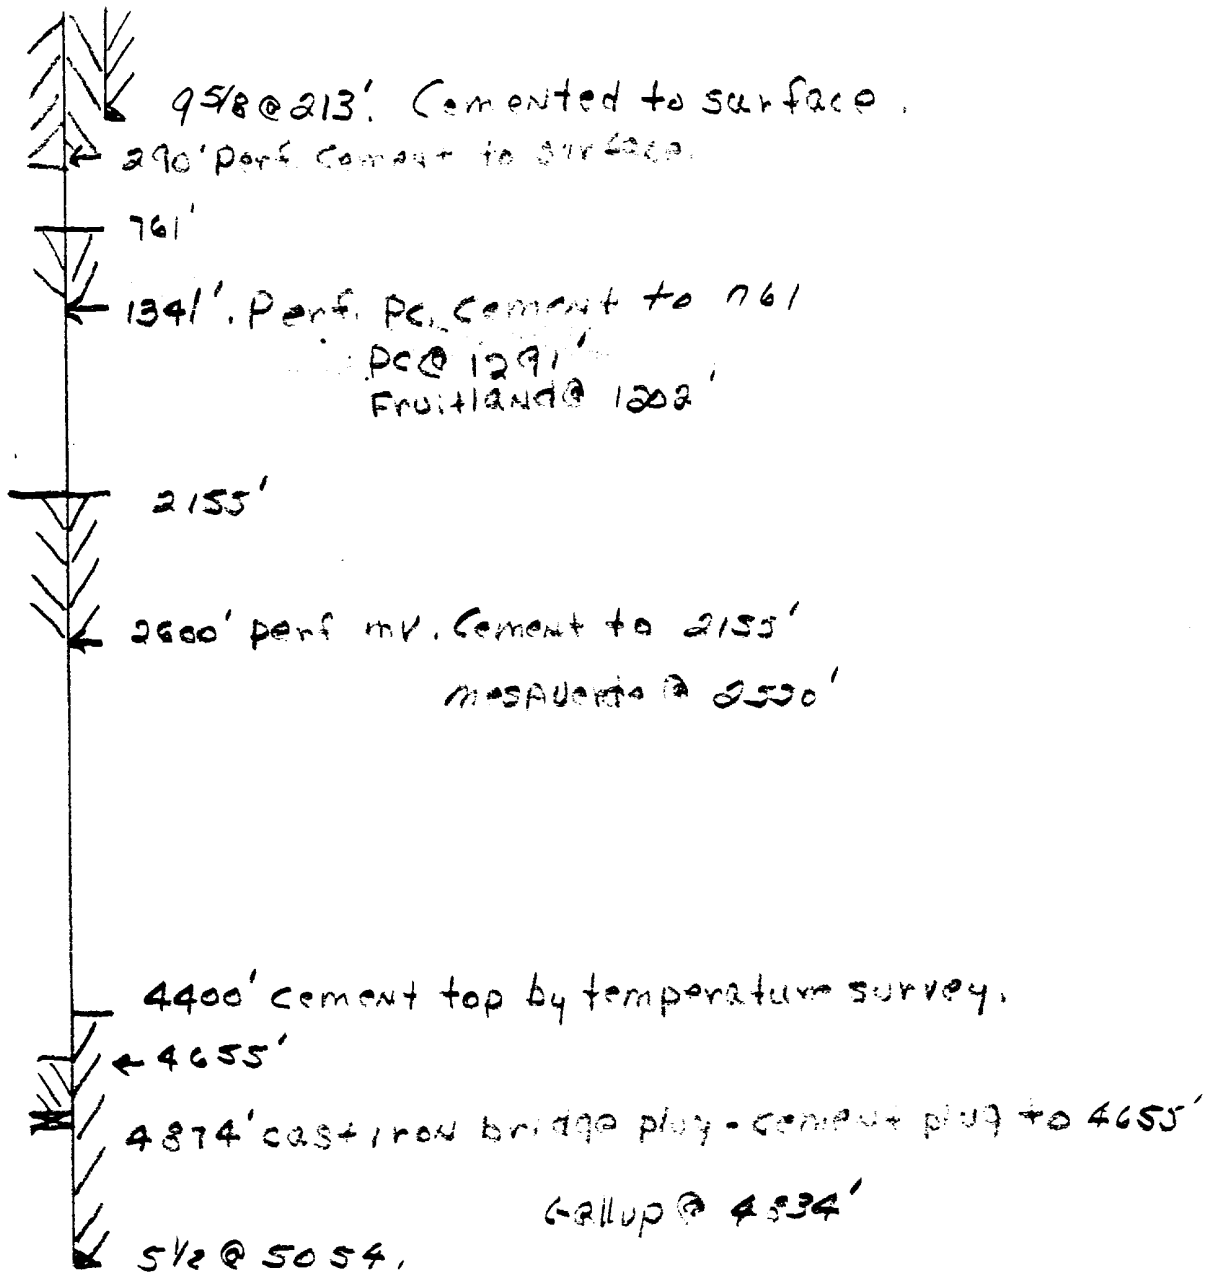 9 5/8 @ 213'. Cemented to surface.
290' perf. cement to surface.
761'
1341'. Perf. PC. cement to 761
PC @ 1291'
Fruitland @ 1202'
2155'
2600' perf mv. Cement to 2155'
@ 2530'
4400' cement top by temperature survey.
4655'
4874' cast iron bridge plug - cement plug to 4655'
Gallup @ 4834'
5 1/2 @ 5054.